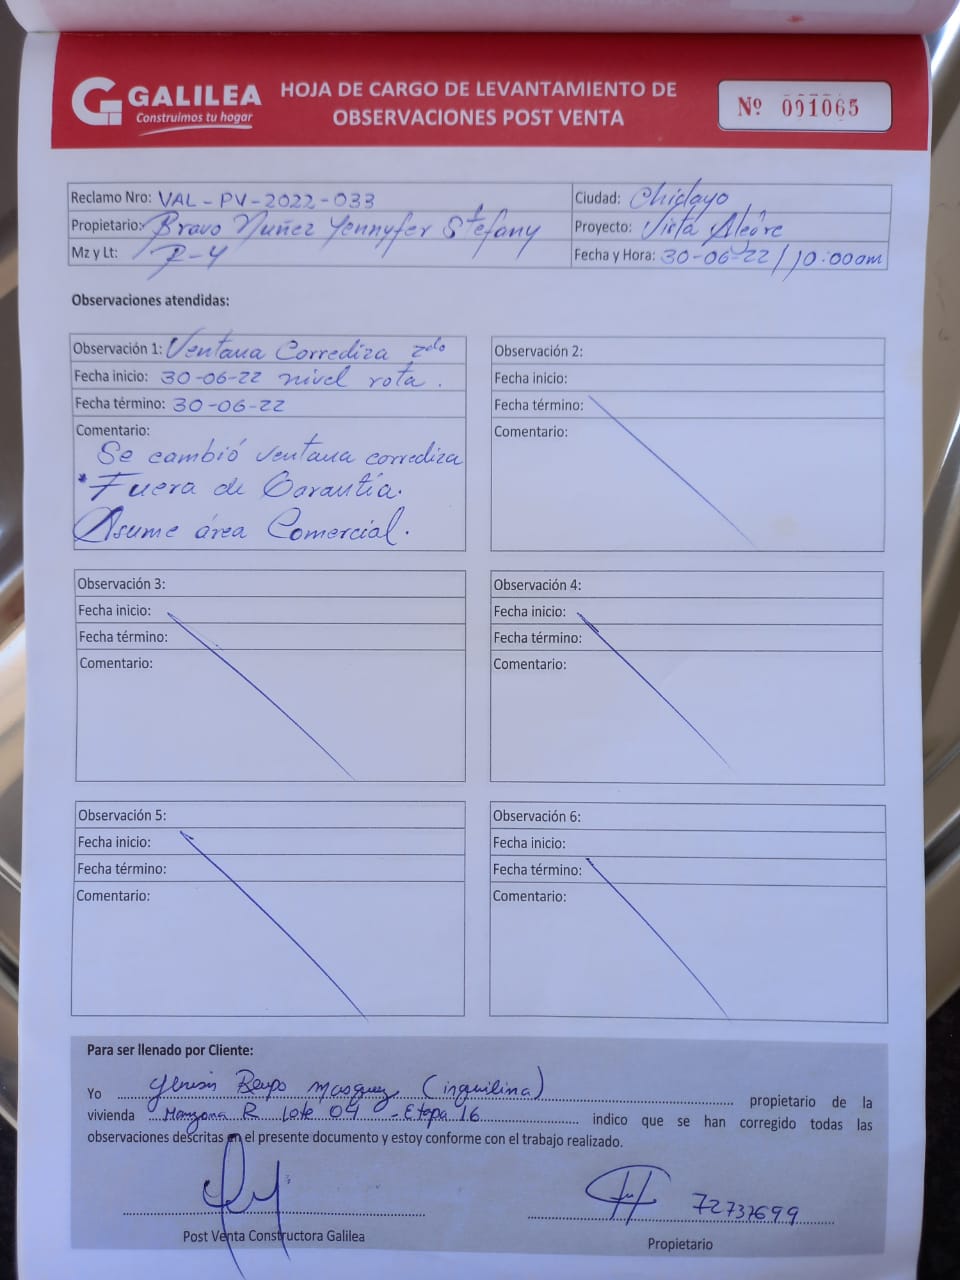 GALILEA
Construimos tu hogar
HOJA DE CARGO DE LEVANTAMIENTO DE
OBSERVACIONES POST VENTA
Nº 001065
Reclamo Nro: VAL-PV-2022-033
Ciudad: Chiclayo
Propietario: Bravo Nuñez Yennyfer Stefany
Proyecto: Vista Alegre
Mz y Lt: R-4
Fecha y Hora: 30-06-22 / 10:00am
Observaciones atendidas:
Observación 1: Ventana Corrediza 2do
Fecha inicio: 30-06-22 nivel rota.
Fecha término: 30-06-22
Comentario:
Se cambió ventana corrediza
*Fuera de Garantía.
Asume área Comercial.
Observación 2:
Fecha inicio:
Fecha término:
Comentario:
Observación 3:
Fecha inicio:
Fecha término:
Comentario:
Observación 4:
Fecha inicio:
Fecha término:
Comentario:
Observación 5:
Fecha inicio:
Fecha término:
Comentario:
Observación 6:
Fecha inicio:
Fecha término:
Comentario:
Para ser llenado por Cliente:
Yo (inquilina) propietario de la
vivienda Manzana R Lote 04 - Etapa 16 indico que se han corregido todas las
observaciones descritas en el presente documento y estoy conforme con el trabajo realizado.
72737699
Post Venta Constructora Galilea
Propietario